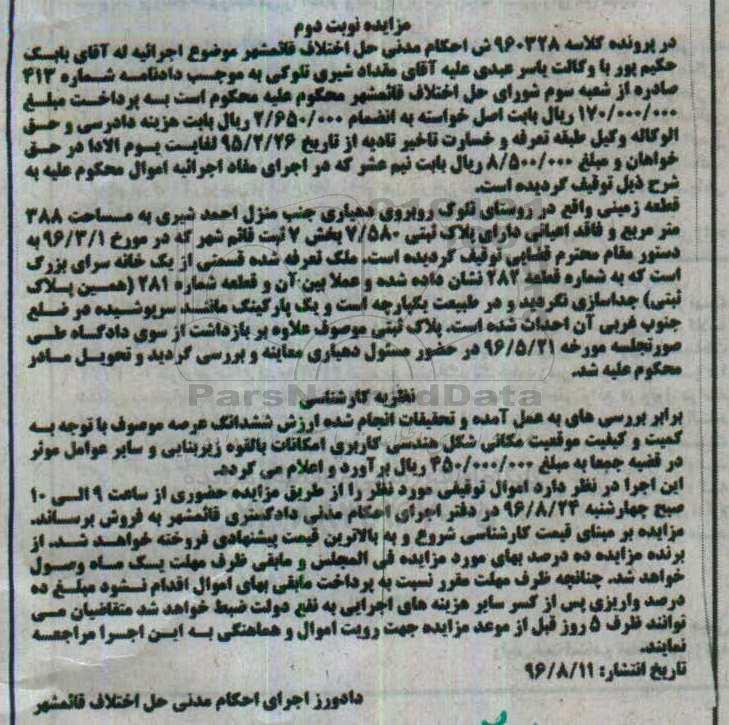 مزایده نوبت دوم
در پرونده کلاسه ۹۶۰۳۲۸ ش احکام مدنی حل اختلاف قائمشهر موضوع اجرائیه له آقای بابک
حکیم پور با وکالت یاسر عبدی علیه آقای مقداد شیری تلوکی به موجب دادنامه شماره ۴۱۳
صادره از شعبه سوم شورای حل اختلاف قائمشهر محکوم علیه محکوم است به پرداخت مبلغ
۱۷۰/۰۰۰/۰۰۰ ریال بابت اصل خواسته به انضمام ۲/۶۵۰/۰۰۰ ریال بابت هزینه دادرسی و حق
الوکاله وکیل طبقه تعرفه و خسارت تاخیر تادیه از تاریخ ۹۵/۲/۲۶ لغایت یوم الادا در حق
خواهان و مبلغ ۸/۵۰۰/۰۰۰ ریال بابت نیم عشر که در اجرای مفاد اجرائیه اموال محکوم علیه به
شرح ذیل توقیف گردیده است.
قطعه زمینی واقع در روستای تلوک روبروی دهیاری جنب منزل احمد شیری به مساحت ۳۸۸
متر مربع و فاقد اعیانی دارای پلاک ثبتی ۷/۵۸۰ بخش ۷ ثبت قائم شهر که در مورخ ۹۶/۳/۱ به
دستور مقام محترم قضایی توقیف گردیده است. ملک تعرفه شده قسمتی از یک خانه سرای بزرگ
است که به شماره قطعه ۲۸۲ نشان داده شده و عملا بین آن و قطعه شماره ۲۸۱ (همین پلاک
ثبتی) جداسازی نگردید و در طبیعت یکپارچه است و یک پارکینگ مانند سرپوشیده در ضلع
جنوب غربی آن احداث شده است. پلاک ثبتی موصوف علاوه بر بازداشت از سوی دادگاه طی
صورتجلسه مورخه ۹۶/۵/۲۱ در حضور مسئول دهیاری معاینه و بررسی گردید و تحویل مادر
محکوم علیه شد.
ParsNamadData
نظریه کارشناسی
برابر بررسی های به عمل آمده و تحقیقات انجام شده ارزش ششدانگ عرصه موصوف با توجه به
کمیت و کیفیت موقعیت مکانی شکل هندسی کاربری امکانات بالقوه زیربنایی و سایر عوامل موثر
در قضیه جمعا به مبلغ ۴۵۰/۰۰۰/۰۰۰ ریال برآورد و اعلام می گردد.
این اجرا در نظر دارد اموال توقیفی مورد نظر را از طریق مزایده حضوری از ساعت ۹ الی ۱۰
صبح چهارشنبه ۹۶/۸/۲۴ در دفتر اجرای احکام مدنی دادگستری قائمشهر به فروش برساند.
مزایده بر مبنای قیمت کارشناسی شروع و به بالاترین قیمت پیشنهادی فروخته خواهد شد. از
برنده مزایده ده درصد بهای مورد مزایده فی المجلس و مابقی ظرف مهلت یک ماه وصول
خواهد شد. چنانچه ظرف مهلت مقرر نسبت به پرداخت مابقی بهای اموال اقدام نشود مبلغ ده
درصد واریزی پس از کسر سایر هزینه های اجرایی به نفع دولت ضبط خواهد شد متقاضیان می
توانند ظرف ۵ روز قبل از موعد مزایده جهت رویت اموال و هماهنگی به این اجرا مراجعه
نمایند.
تاریخ انتشار: ۹۶/۸/۱۱
دادورز اجرای احکام مدنی حل اختلاف قائمشهر